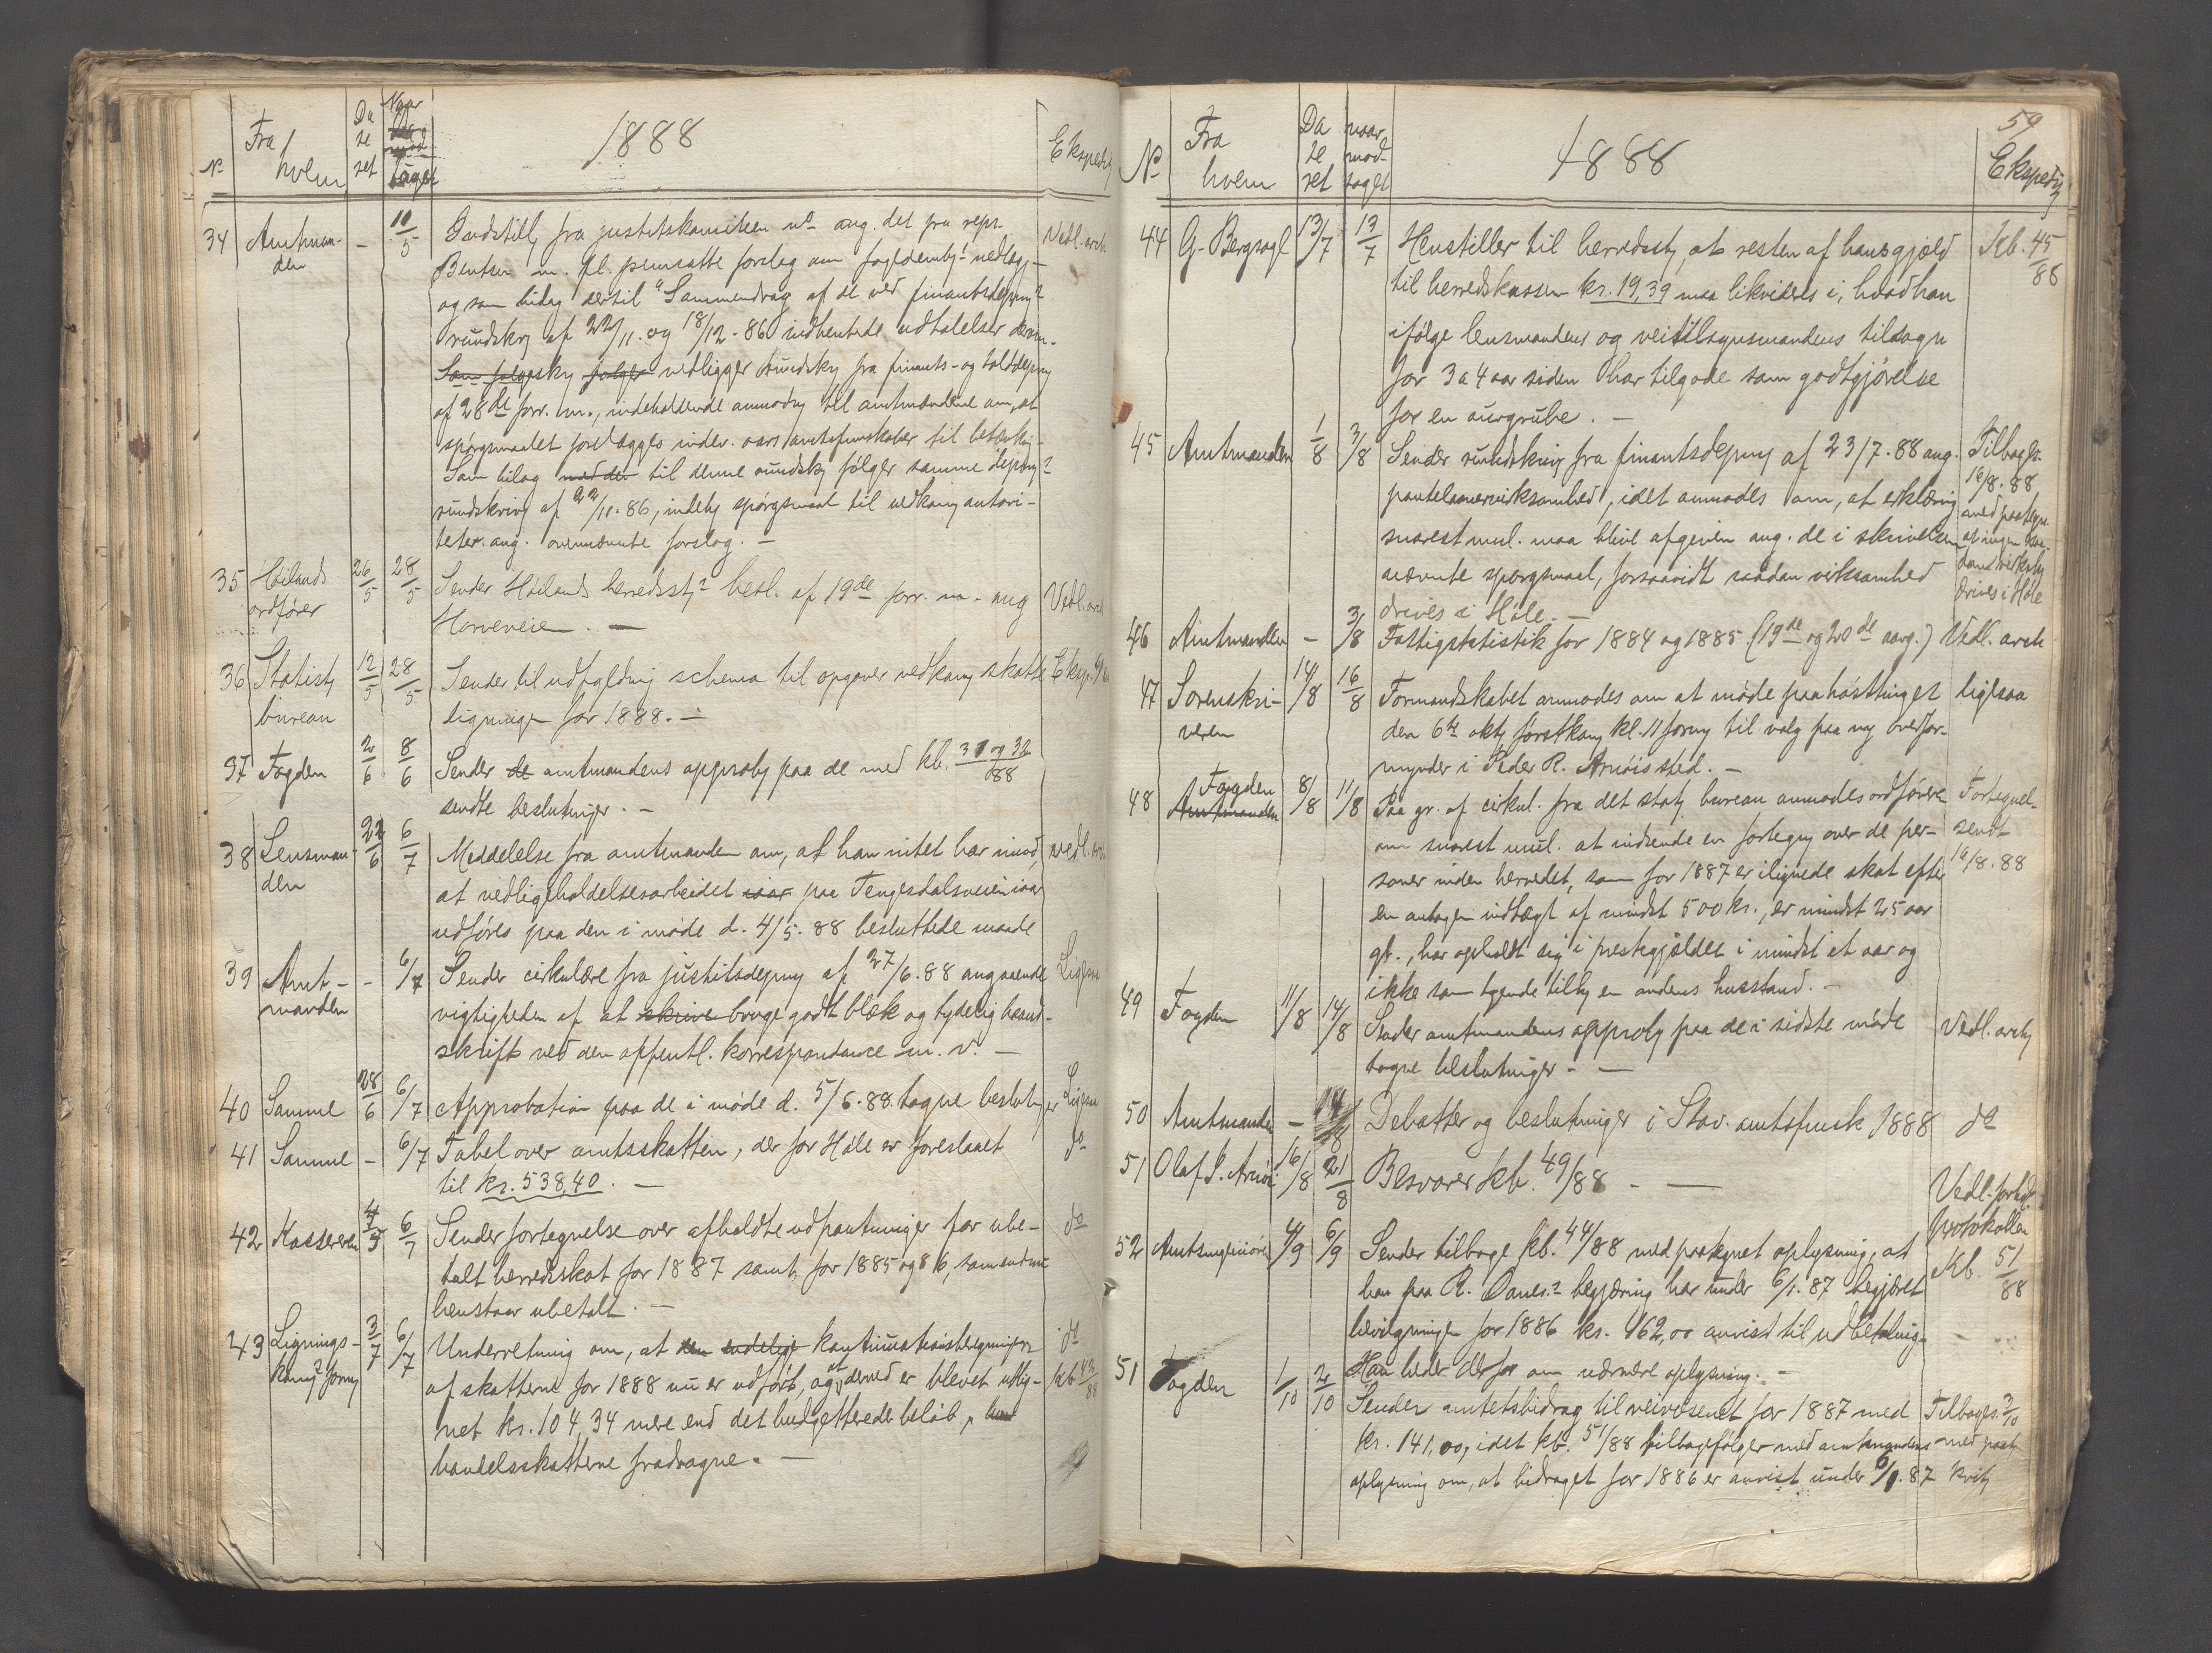 1888
No Fra hvem Da te ret Naar mod taget Ekspedtj
34 Amtman- den - 10/5 Indstillg fra justitskomiteen ang. det fra repr. Vedl. arch
Bentsen m. fl. fremsatte forslag om fogdembr nedlægg-
og som bilag dertil "Sammendrag af de ved finantsdepmg
rundskrv af 22/11. og 18/12 - 86 indhentede udtalelser derom.
vedligger rundskr fra finants- og tolddepmg
af 28de forr. m., indeholdende anmodng til amtmændene om, at
spörgsmaalet forelægges indev. aars amtsformskaber til betænkn-
Som bilag til denne rundskr fölger samme depmg
rundskriv af 22/11. 86, indeh spörgsmaal til vedkomg autori-
teter ang. ovennævnte forslag. -
35 Höilands ordförer 26/5 28/5 Sender Hölands herredsst. besl. af 19de forr. m. ang Vedl. arch
Horveveien. -
36 Statist. bureau 12/5 28/5 Sender til udfyldning schema til opgaver vedkomg skatte Eksp.
ligningen for 1888. -
37 Fogden 2/6 8/6 Sender de amtmandens approbg paa de med kb. 31 og 32/88
sendte beslutninger. -
38 Lensman- den 22/6 6/7 Meddelelse fra amtmanden om, at han intet har imod vedl. arch
at vedligeholdelsesarbeidet iaar paa Tengesdalsveien iaar
udföres paa den i möde d. 4/5. 88 besluttede maade
39 Amt- manden - 6/7 Sender cirkulære fra justitsdepmg af 27/6. 88 angaaende Ligesaa
vigtigheden af at skrive bruge godt blæk og tydelig haand-
skrift ved den offentl. korrespondance m. v. -
40 Samme 28/6 6/7 Approbation paa de i möde d. 5/6. 88. tagne beslutnger Ligesaa
41 Samme - 6/7 Tabel over amtsskatten, der for Höle er foreslaaet do
til kr. 538,40. -
42 Kasseren 4/5 6/7 Sender fortegnelse over afholdte udpantninger for ube- do
talt herredsskat for 1887 samt for 1885 og 86, som endnu
henstaar ubetalt. -
43 Lignings- komg formg 3/7 6/7 Underretning om, at den endelige kontinuationsberegningen do
af skatterne for 1888 nu er udfört, og at derved er blevet udlig- kb 43/88
net kr. 104,34 mere end det budgetterede belöb,
handelsskatterne fradragne. -
59
1888
No Fra hvem Da te ret naar mod- taget Ekspedtj
44 G. Bergsagl 13/7 13/7 Henstiller til herredsst, at resten af hans gjæld Kb. 45/88
til herredskassen kr. 19,39 maa likvideres i, hvad han
ifölge lensmandens og veitilsynsmandens tilsagn
for 3 a 4 aar siden har tilgode som godtgjörelse
for en aurgrube. -
45 Amtmanden 1/8 3/8 Sender rundskriv fra finantsdepmg af 23/7. 88 ang. Tilbages.
pantelaanervirksomhed, idet anmodes om, at erklæring 10/8. 88
snarest mul. maa blive afgiven ang. de i skrivelsen med paategn.
nævnte spörgsmaal, forsaavidt saadan virksomhed at ingen saa-
drives i Höle. - dan virksh drives i Höle
46 Amtmanden - 3/8 Fattigstatistik for 1884 og 1885 (19de og 20de aarg.) Vedl. arch
47 Sorenskri- veren 14/8 16/8 Formandskabet anmodes om at möde paa hösttinget ligesaa
den 6te oktg förstkomg kl. 11 formg til valg paa ny overfor-
mynder i Peder R. Arnöis sted. -
48 Fogden Amtmanden 8/8 11/8 Paa gr. af cirkul. fra det statg bureau anmodes ordföreren Fortegnel-
om snarest mul. at indsende en fortegng over de per- sendt
soner inden herredet, som for 1887 er ilignede skat efter 10/8. 88
en antagen indtægt af mindst 500 kr., er mindst 25 aar
gl., har opholdt sig i prestegjældet i mindst et aar og
ikke som tyende tilhg en andens husstand. -
49 Fogden 11/8 14/8 Sender amtmandens approbg paa de i sidste möde Vedl. archg
tagne beslutninger - -
50 Amtmanden - 14/8 Debatter og beslutninger i Stav. amtsfmsk 1888 do
51 Olaf P. Arnöi 16/8 21/8 Besvarer kb. 49/88 - - Vedl. forhds protokollen
52 Amtsingeniören 4/9 6/9 Sender tilbage kb. 44/88 med paategnet oplysning, at Kb. 51/88
han paa R. begjæring har under 6/1. 87 begjæret
bevilgningen for 1886 kr. 162,00 anvist til udbetaling
Han beder derfor om nærmere oplysning. -
51 Fogden 1/10 2/10 Sender amtetsbidrag til veivæsenet for 1887 med Tilbages. 3/10
kr. 141,00, idet kb. 51/88 tilbagefölger med amtmandens med paat
oplysning om, at bidraget for 1886 er anvist under 6/1. 87 kvitg